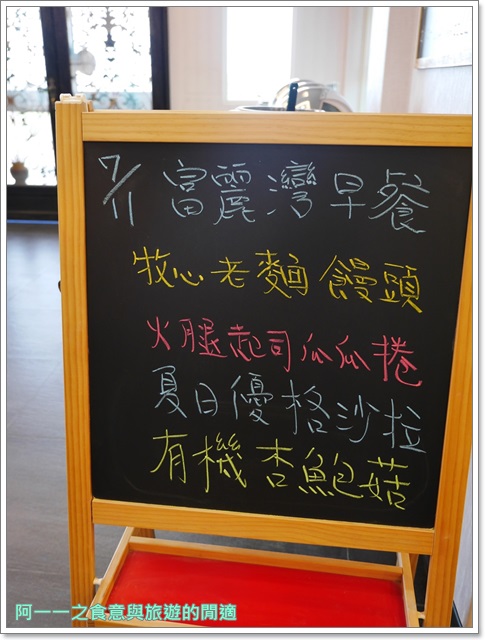 7/11 富麗灣早餐
牧心老麵饅頭
火腿起司瓜瓜捲
夏日優格沙拉
有機杏鮑菇
阿一一之食意與旅遊的閒適